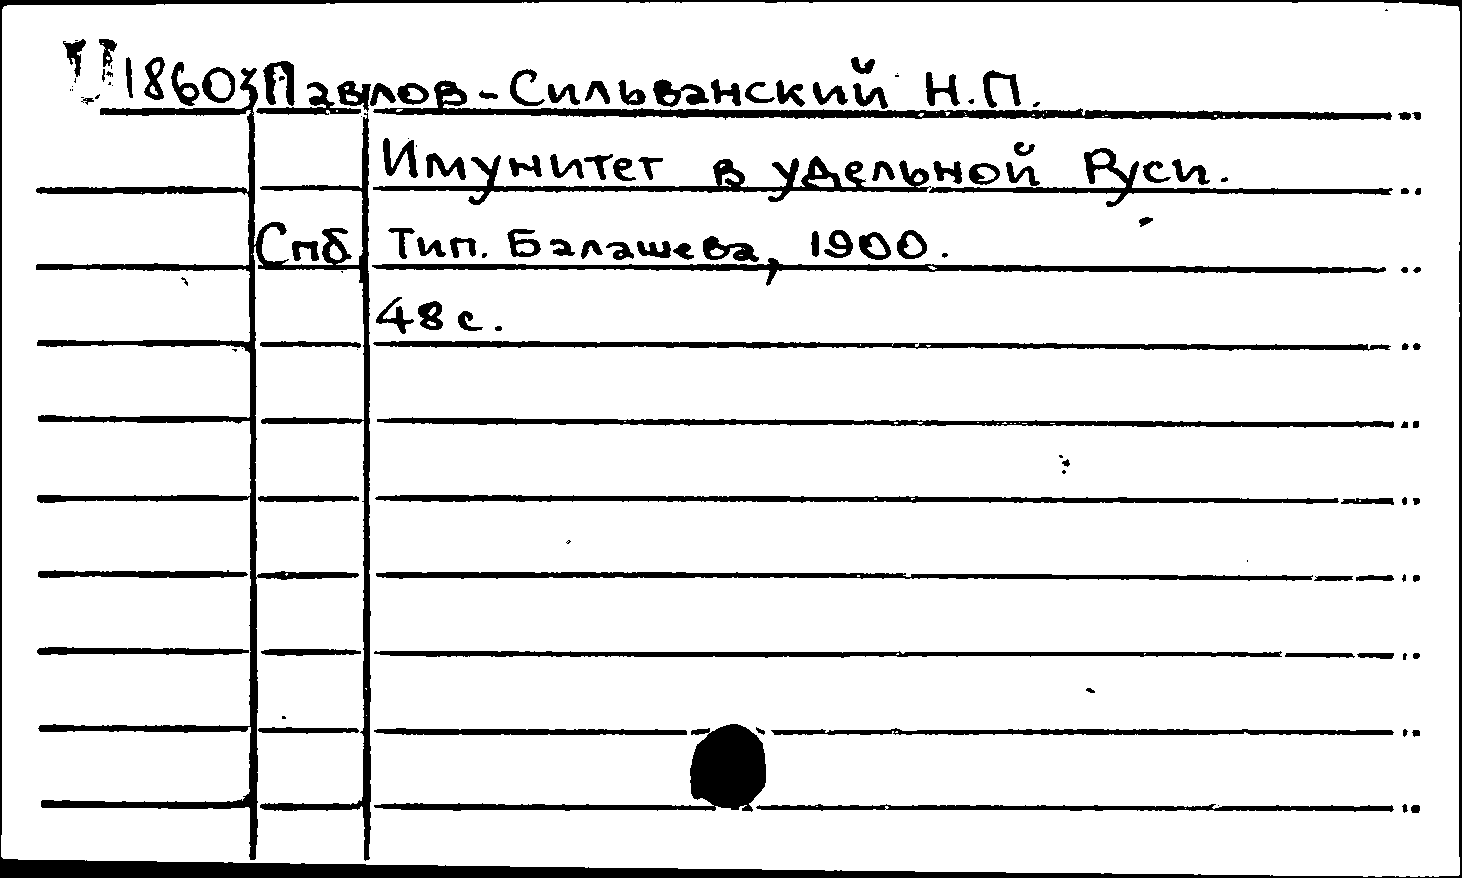 U 18603 Павлов-Сильванский Н.П.
Имунитет в удельной Руси.
Спб, Тип. Балашева, 1900.
48 с.